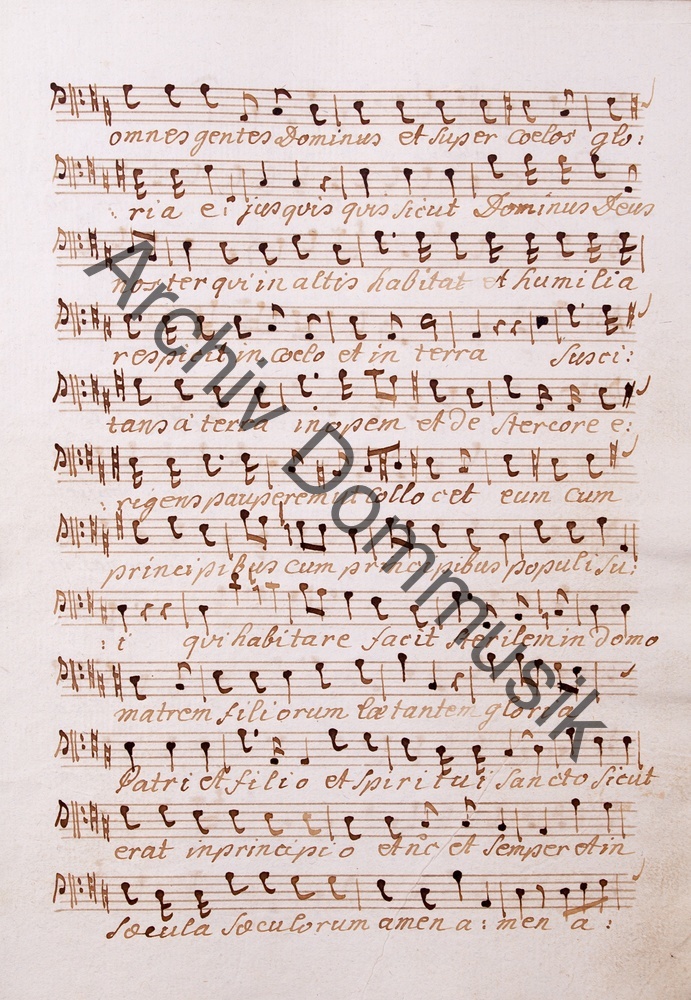 omnes gentes Dominus et super coelos glo:
:ria ei: jus quis quis sicut Dominus Deus
noster qui in altis habitat et humilia
respicit in coelo et in terra Susci:
tans a terra inopem et de stercore e:
:rigens pauperem ut collocet eum cum
principibus cum principibus populi su:
:i qui habitare facit sterilem in domo
matrem filiorum lætantem gloria
Patri et filio et spiritui sancto sicut
erat in principio et nc et semper et in
sæcula sæculorum amen a: men a:
Archiv Dommusik